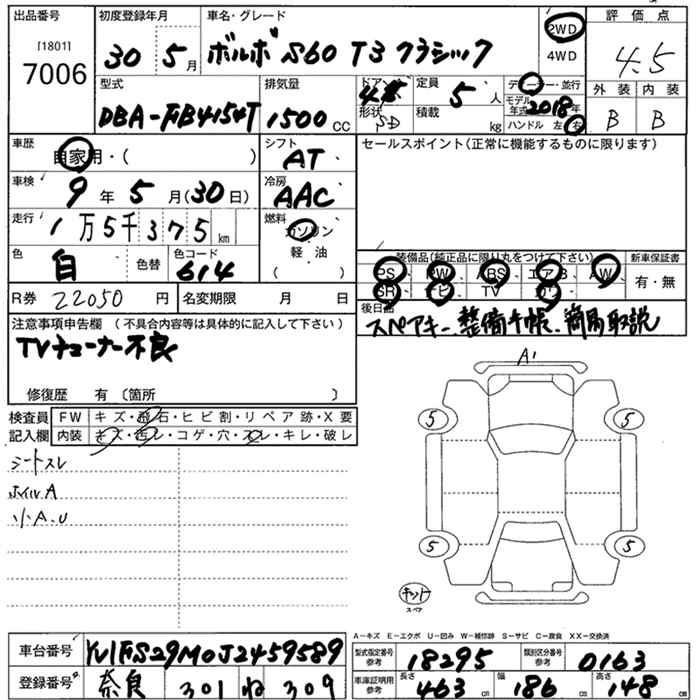 出品番号 初度登録年月 車名・グレード 評価点
[1801] 7006 30 5月 ボルボ S60 T3 クラシック 2WD 4WD 4.5
型式 排気量 ドア 定員 ディーラー・並行 外装 内装
DBA-FB4154T 1500cc 4 5人 モデル年式 2018年 B B
形状 SD 積載 kg ハンドル 左・右
車歴 自家用・( ) シフト AT セールスポイント(正常に機能するものに限ります)
車検 9年5月(30日) 冷房 AAC
走行 1万5千375km 燃料 ガソリン 軽・油 ( )
色 白 色替 色コード 614
装備品(純正品に限り丸をつけて下さい) 新車保証書
PS PW ABS エアB AW 有・無
SR ナビ TV カワ
R券 22050円 名変期限 月 日
後日品 スペアキー、整備手帳、簡易取説
注意事項申告欄 (不具合内容等は具体的に記入して下さい)
TVチューナー不良
修復歴 有〔箇所 〕
検査員記入欄 FW キズ・飛石・ヒビ割・リペア跡・X要
内装 キズ・汚レ・コゲ・穴・スレ・キレ・破レ
シートスレ
ホイルA
小A.U
A1
5 5
5 5
キット
スペア
A-キズ E-エクボ U-凹み W-補修跡 S-サビ C-腐食 XX-交換済
車台番号 YV1FS29M0J2459589
型式指定番号 参考 18295 類別区分番号 参考 0163
登録番号 奈良 301 ね 309
車庫証明用 参考 長さ 463cm 幅 186cm 高さ 148cm